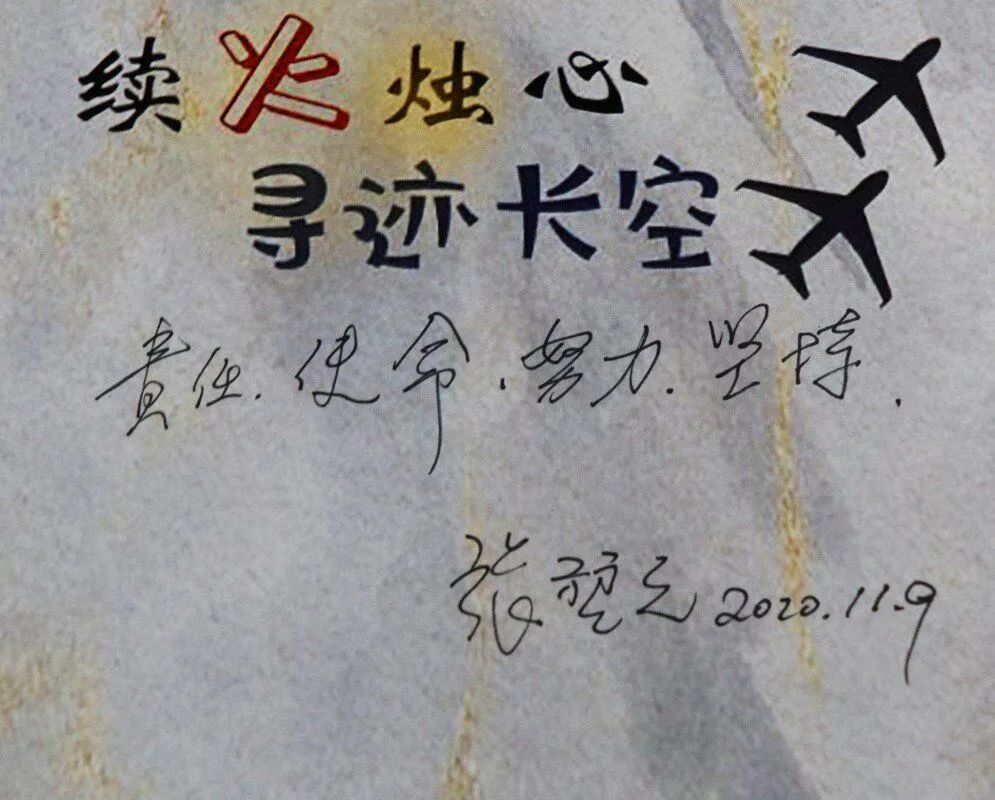 续火烛心
寻迹长空
責任.使命.努力.坚持.
张 之 2020.11.9